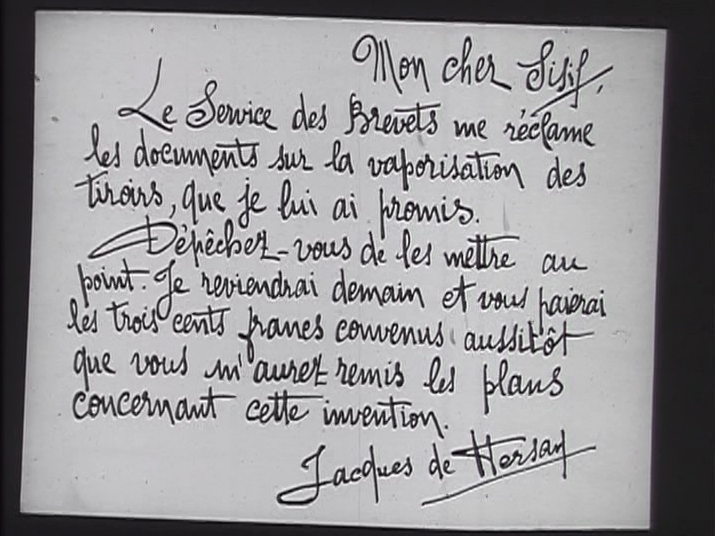 Mon cher Sisif,
Le Service des Brevets me réclame
les documents sur la vaporisation des
tiroirs, que je lui ai promis.
Dépêchez-vous de les mettre au
point. Je reviendrai demain et vous paierai
les trois cents francs convenus aussitôt
que vous m'aurez remis les plans
concernant cette invention.
Jacques de Hersan